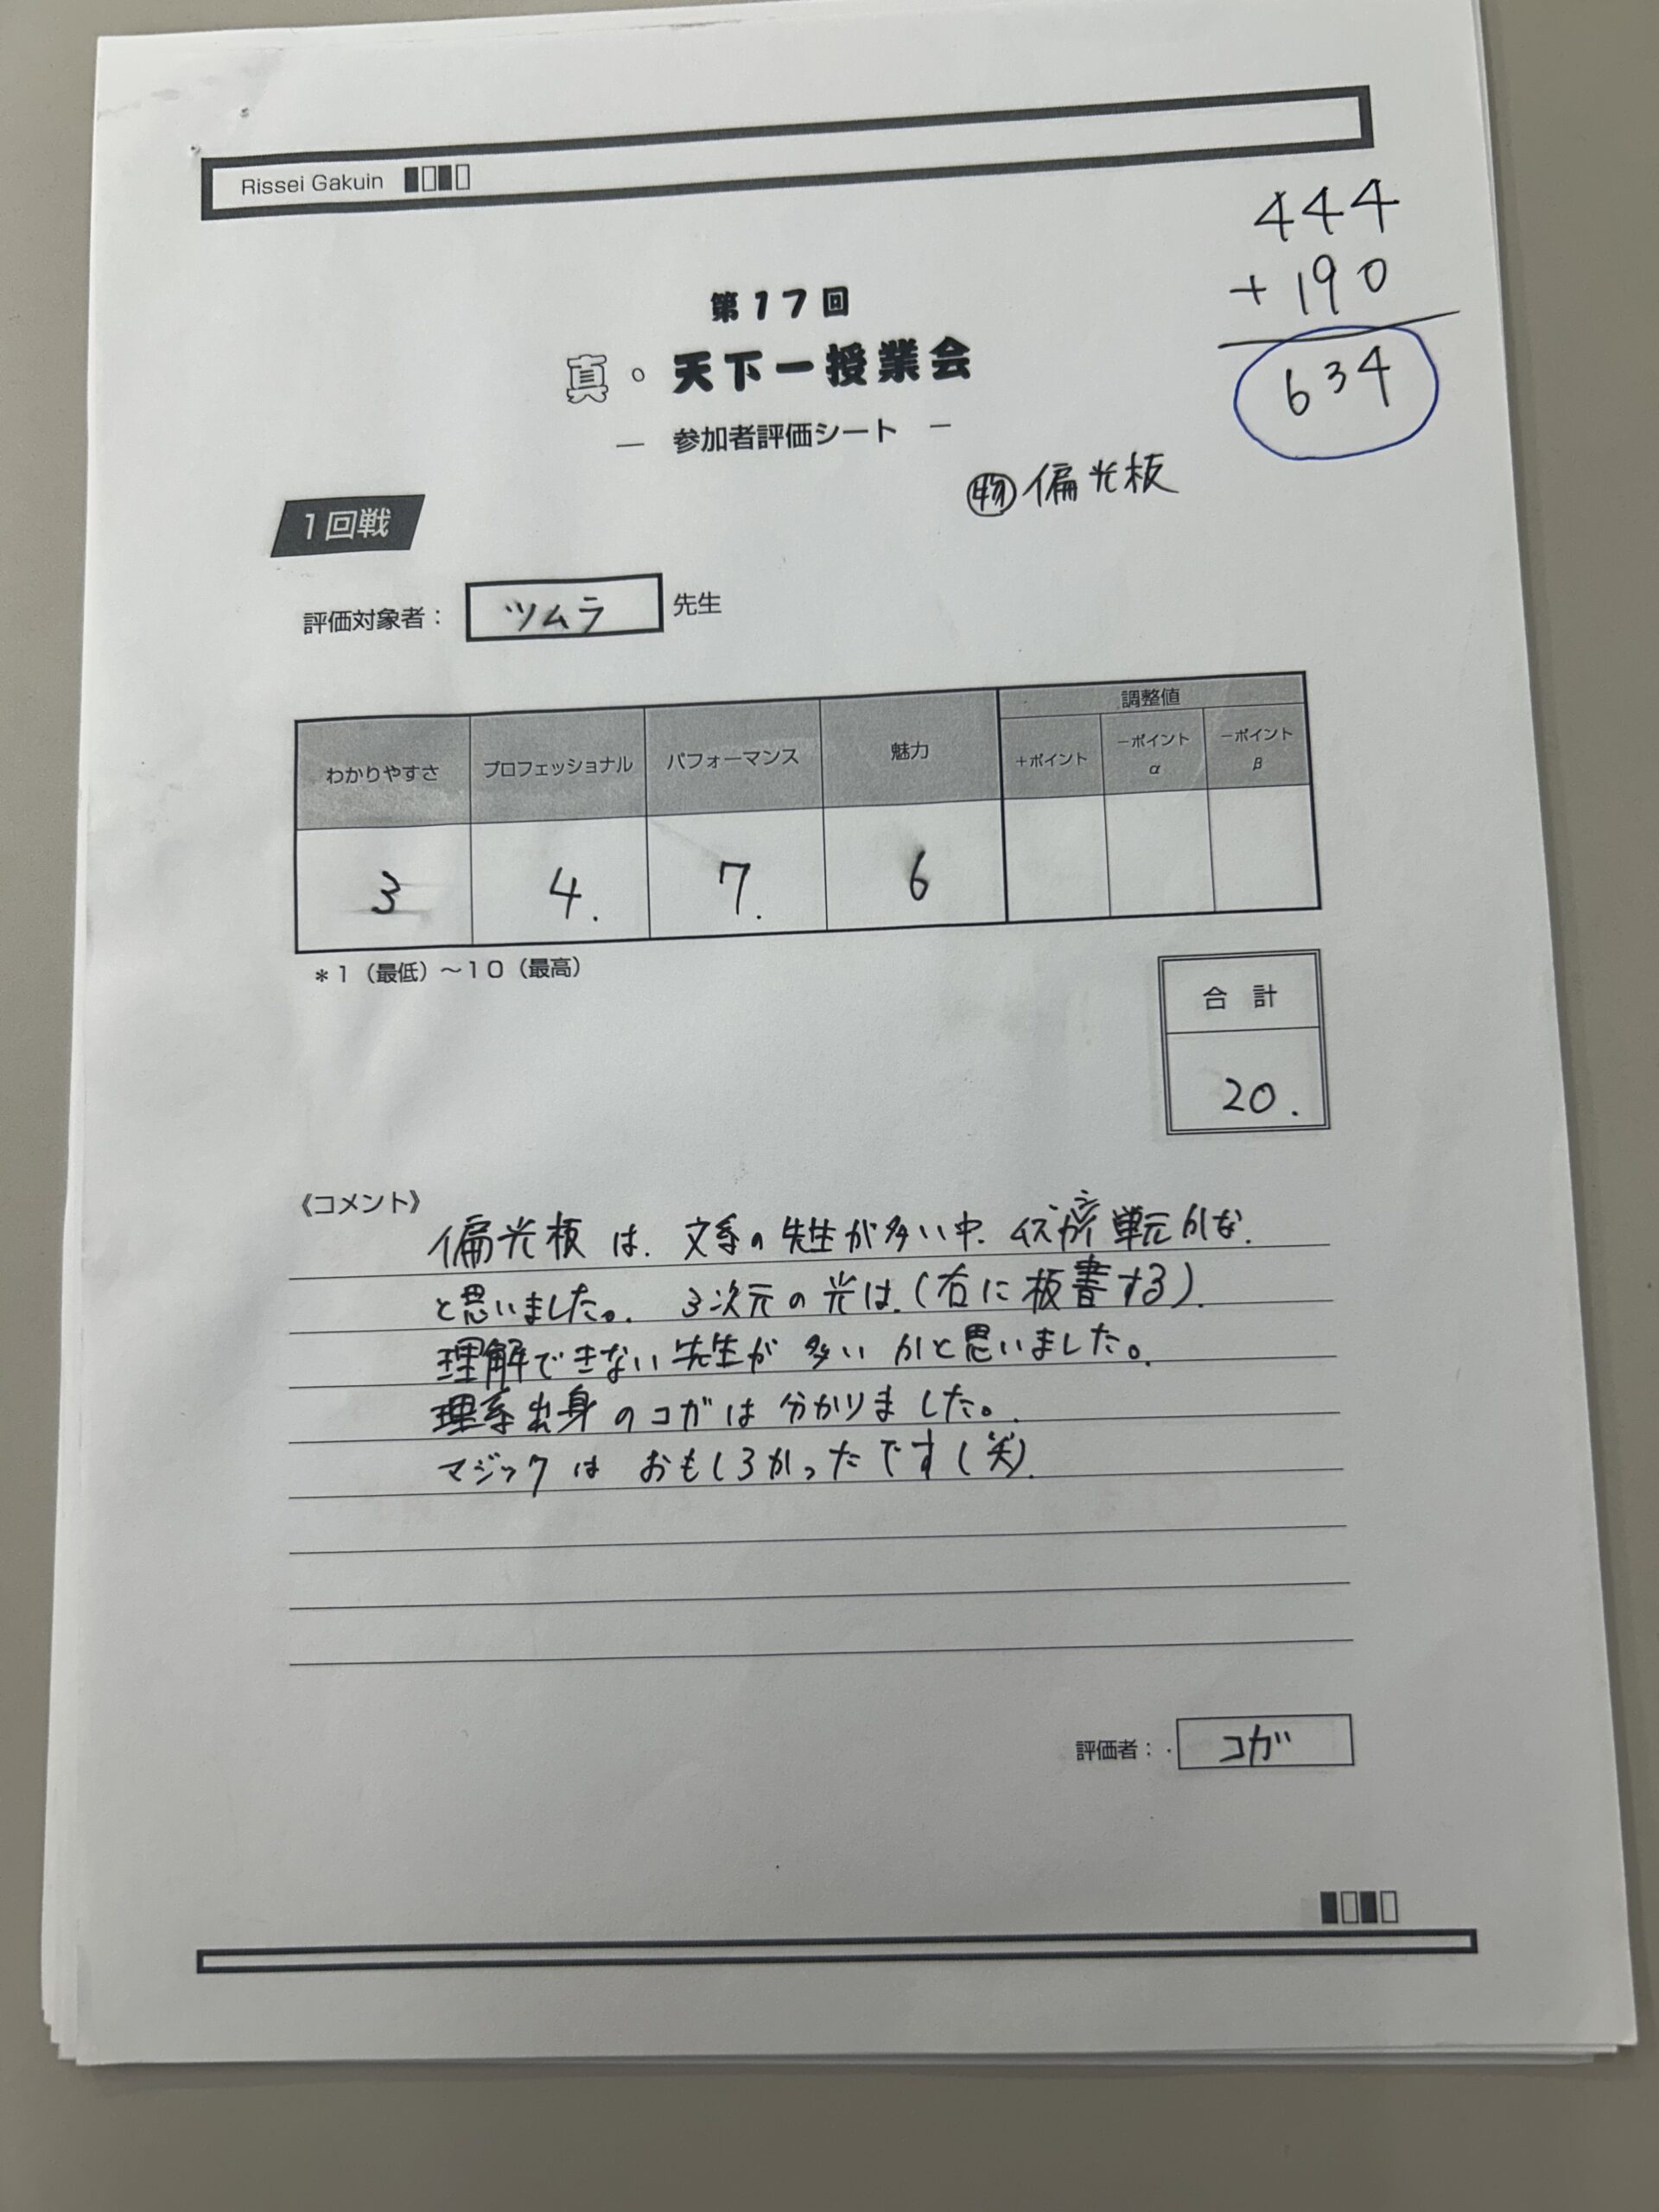 Rissei Gakuin
444
+ 190
634
第17回
真・天下一授業会
― 参加者評価シート ―
物 偏光板
1回戦
評価対象者： ツムラ 先生
調整値
わかりやすさ プロフェッショナル パフォーマンス 魅力 +ポイント −ポイント α −ポイント β
3 4. 7. 6
*1（最低）～10（最高）
合計
20.
《コメント》
偏光板は、文系の先生が多い中、 単元かな、
と思いました。 3次元の光は、(右に板書する)、
理解できない先生が多いかと思いました。
理系出身のコガは分かりました。
マジックはおもしろかったです(笑)
評価者： コガ